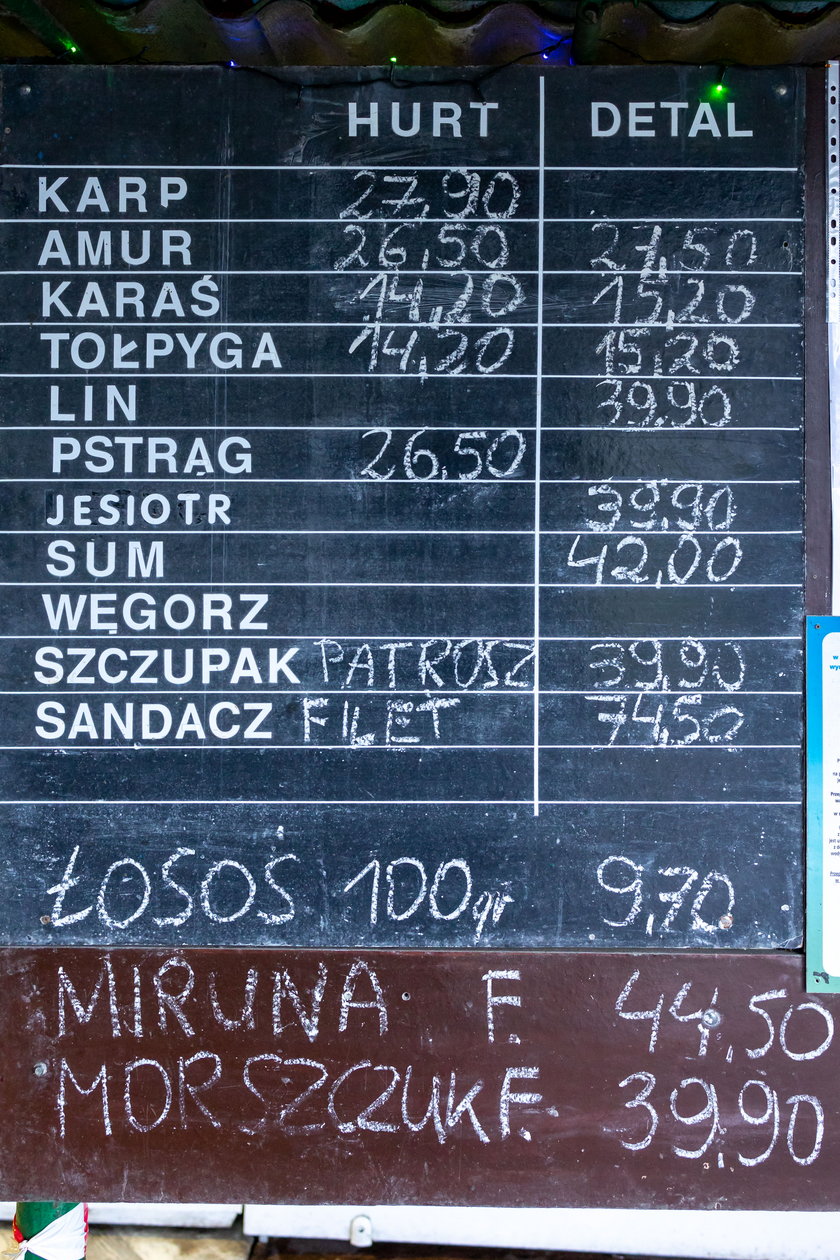 HURT DETAL
KARP 27,90
AMUR 26,50 27,50
KARAŚ 14,20 15,20
TOŁPYGA 14,20 15,20
LIN 39,90
PSTRĄG 26,50
JESIOTR 39,90
SUM 42,00
WĘGORZ
SZCZUPAK PATROSZ 39,90
SANDACZ FILET 74,50
ŁOSOS 100gr 9,70
MIRUNA F. 44,50
MORSZCZUK F. 39,90